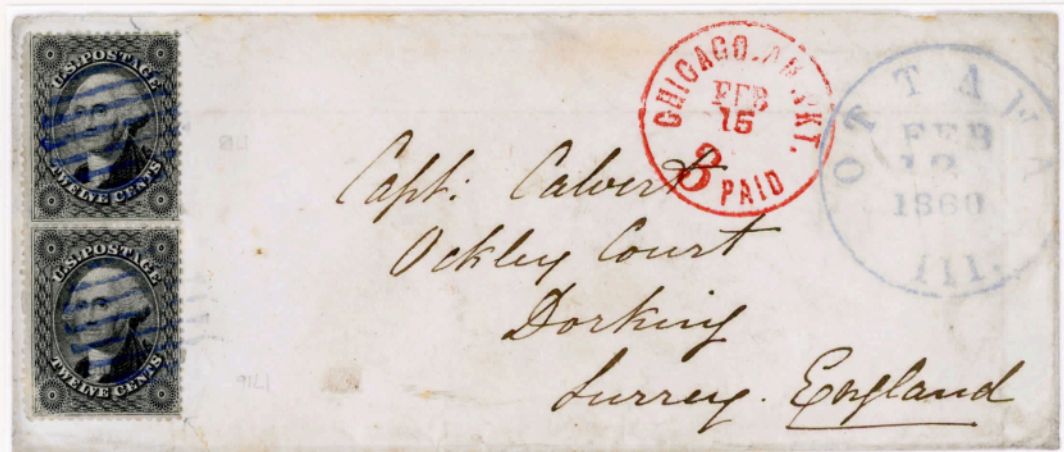 U.S. POSTAGE
TWELVE CENTS
U.S. POSTAGE
TWELVE CENTS
CHICAGO. AM. PKT.
FEB
15
3
PAID
OTTAWA
FEB
12
1860
Ill.
Capt. Calvert
Ockley Court
Dorking
Surrey. England